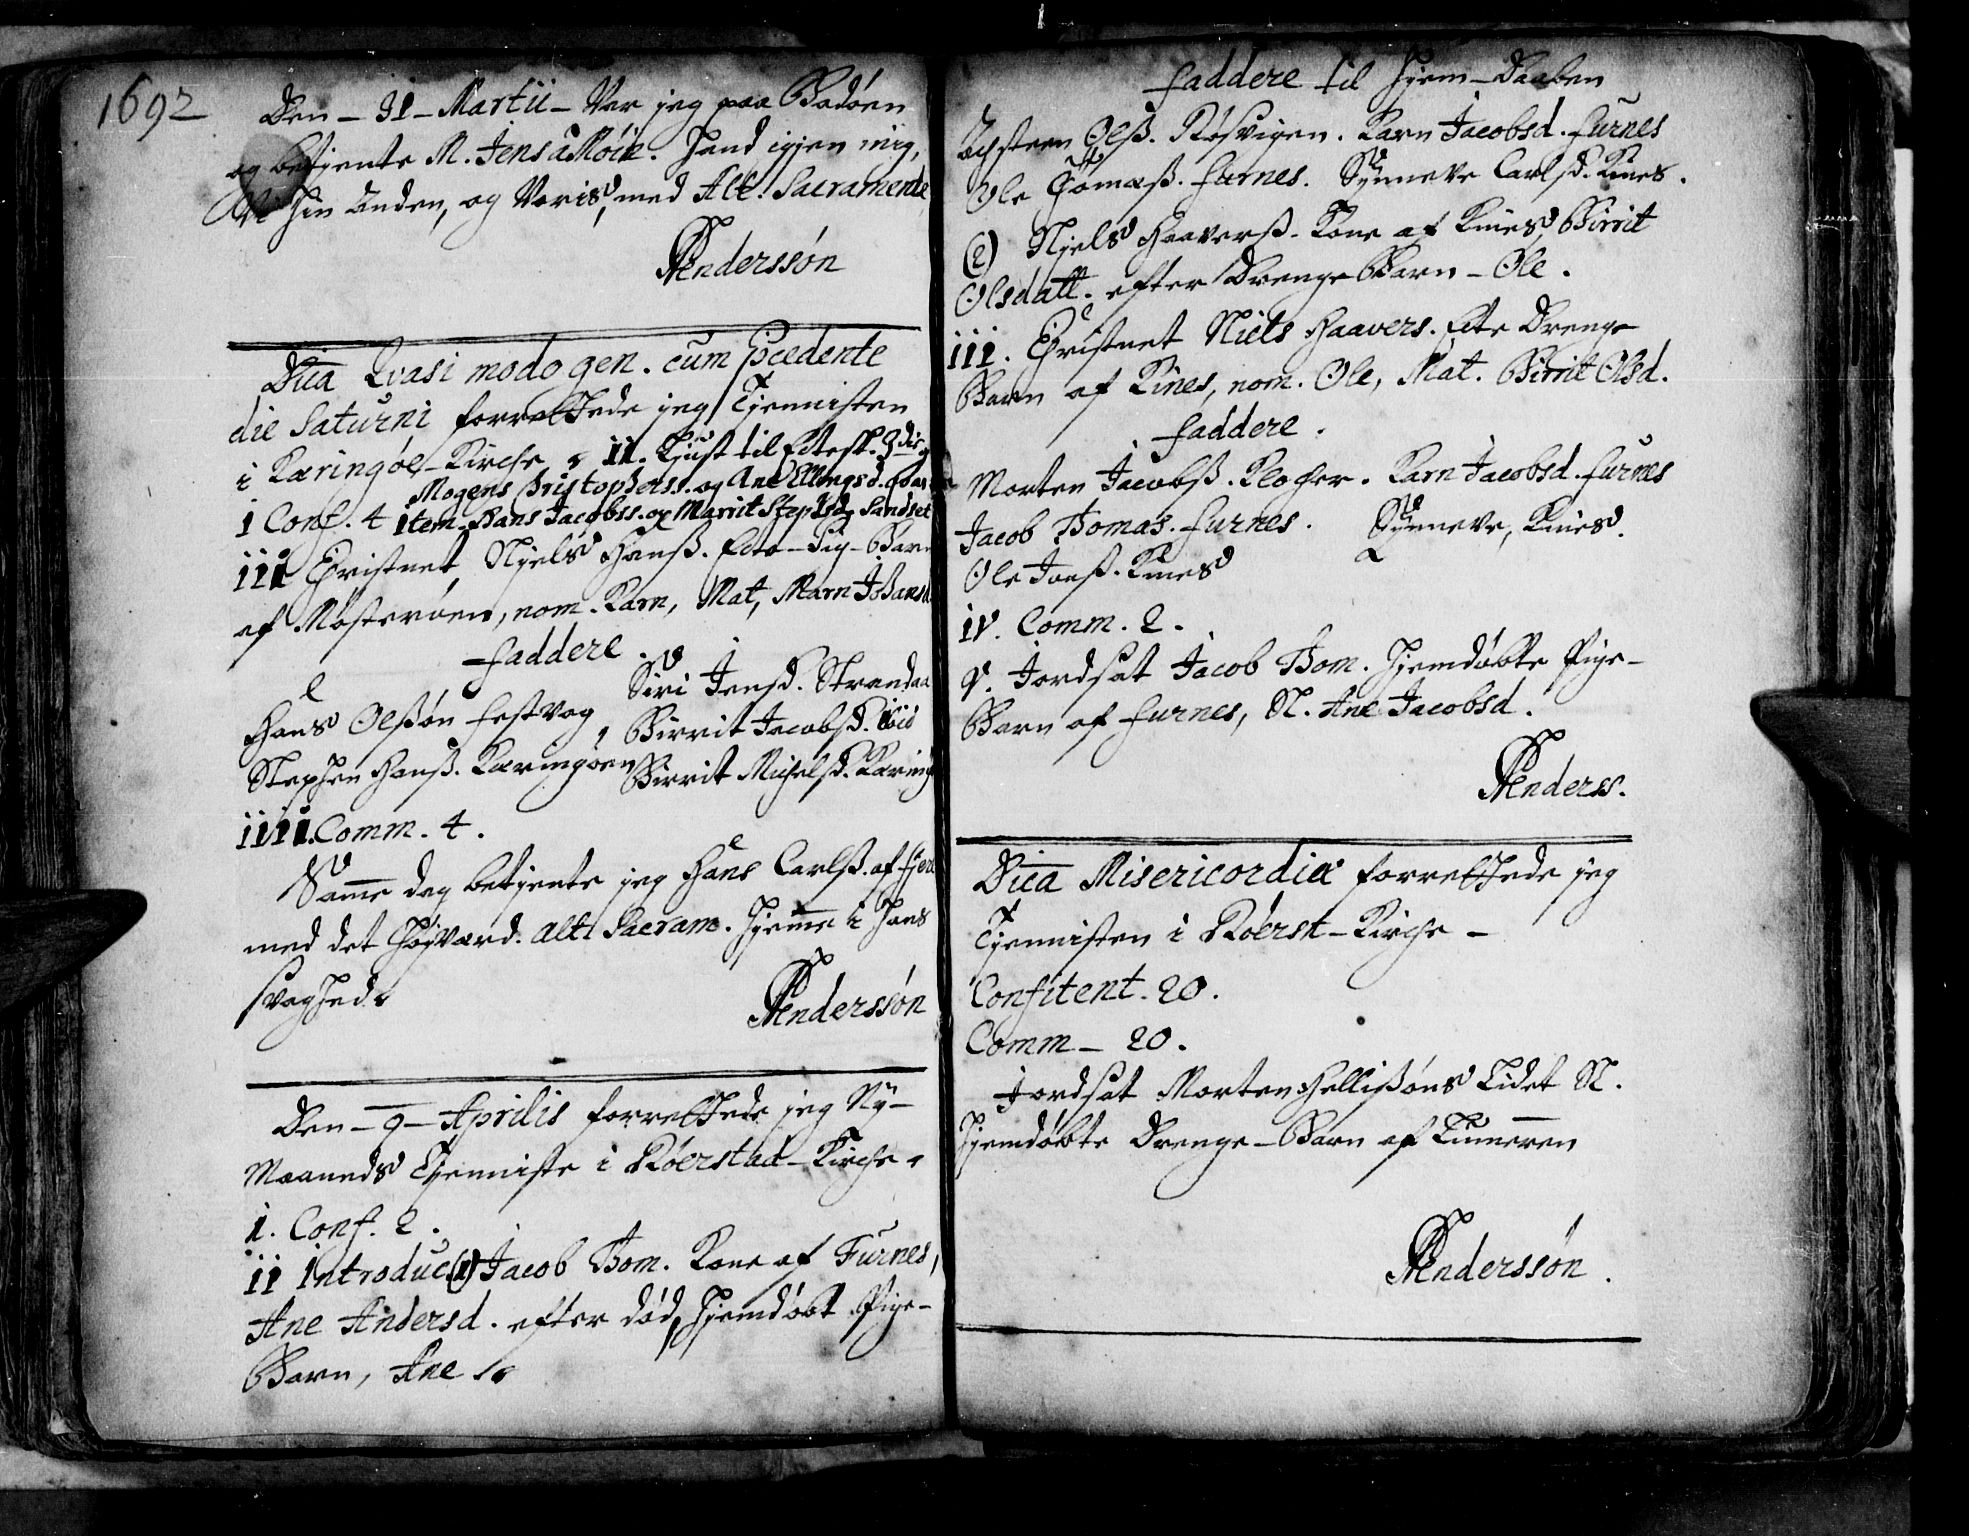 1692
Den - 31 - Martii - Var jeg paa Bodøen
og betjente M. Jens a Møin. Hand igjen mig,
Vi hin anden, og Voris, med Alt. Sacramente
Anderssøn
Dica Qvasi modo gen. cum præcedente
die Saturni forrettede jeg Tjennisten
i Kæringøe-Kirche. ii. Liust til Ectesk. 3die g
Mogens Christophers. og Ane Ellingsd.
1 Conf. 4 item. Hans Jacobss. og Marrit Stephsd. Sandset
iii Christnet Njels Hanß. Ecte-Pig-Barn
af Mosterøen, nom. Karn, Mat, Marn Johansd.
Faddere.
Hans Olßøn Festvog
Siri Jensd. Strandaa
Birrit Jacobsd. ibid
Stephen Hanß. Kæringøen
Birrit Michelsd. Kæring
iiii. Comm. 4.
Samme dag betjente jeg Hans Carlß. af Fjere
med det Høyværd. Alt. Sacram. hjemme i hans
svaghed.
Anderssøn
Den - 9 - Aprilis forrettede jeg Ny-
Maaneds Tjenniste i Røerstad-Kirche.
i. Conf. 2.
ii Introduc. (1) Jacob Thom. Kone af Furnes,
Ane Andersd. efter død, hjemdøbt Pige-
Barn, Ane
Faddere til Hjem-Daaben
Olß. Røsvigen. Karn Jacobsd. Furnes
Ole Thomæß. Furnes. Synneve Carlsd. Kines.
(2) Njels Haaverß. Kone af Kines, Birrit
Olsdatt. efter Drenge Barn - Ole.
iii. Christnet Niels Haavers. Ecte Drenge
Barn af Kines, nom. Ole, Mat. Birrit Olsd.
Faddere.
Morten Jacobß. Klocher. Karn Jacobsd. Furnes
Jacob Thomas. Furnes. Synneve, Kines.
Ole Jonß. Kines
iv. Comm. 2.
v. Jordsat Jacob Thom. Hjemdøbte Pige-
Barn af Furnes, N. Ane Jacobsd.
Anderss.
Dica Misericordiæ forrettede jeg
Tjennisten i Røerst-Kirche -
Confitent. 20.
Comm - 20.
Jordsat Morten Hellißøns Lidet N.
Hjemdøbte Drenge-Barn af
Anderssøn.